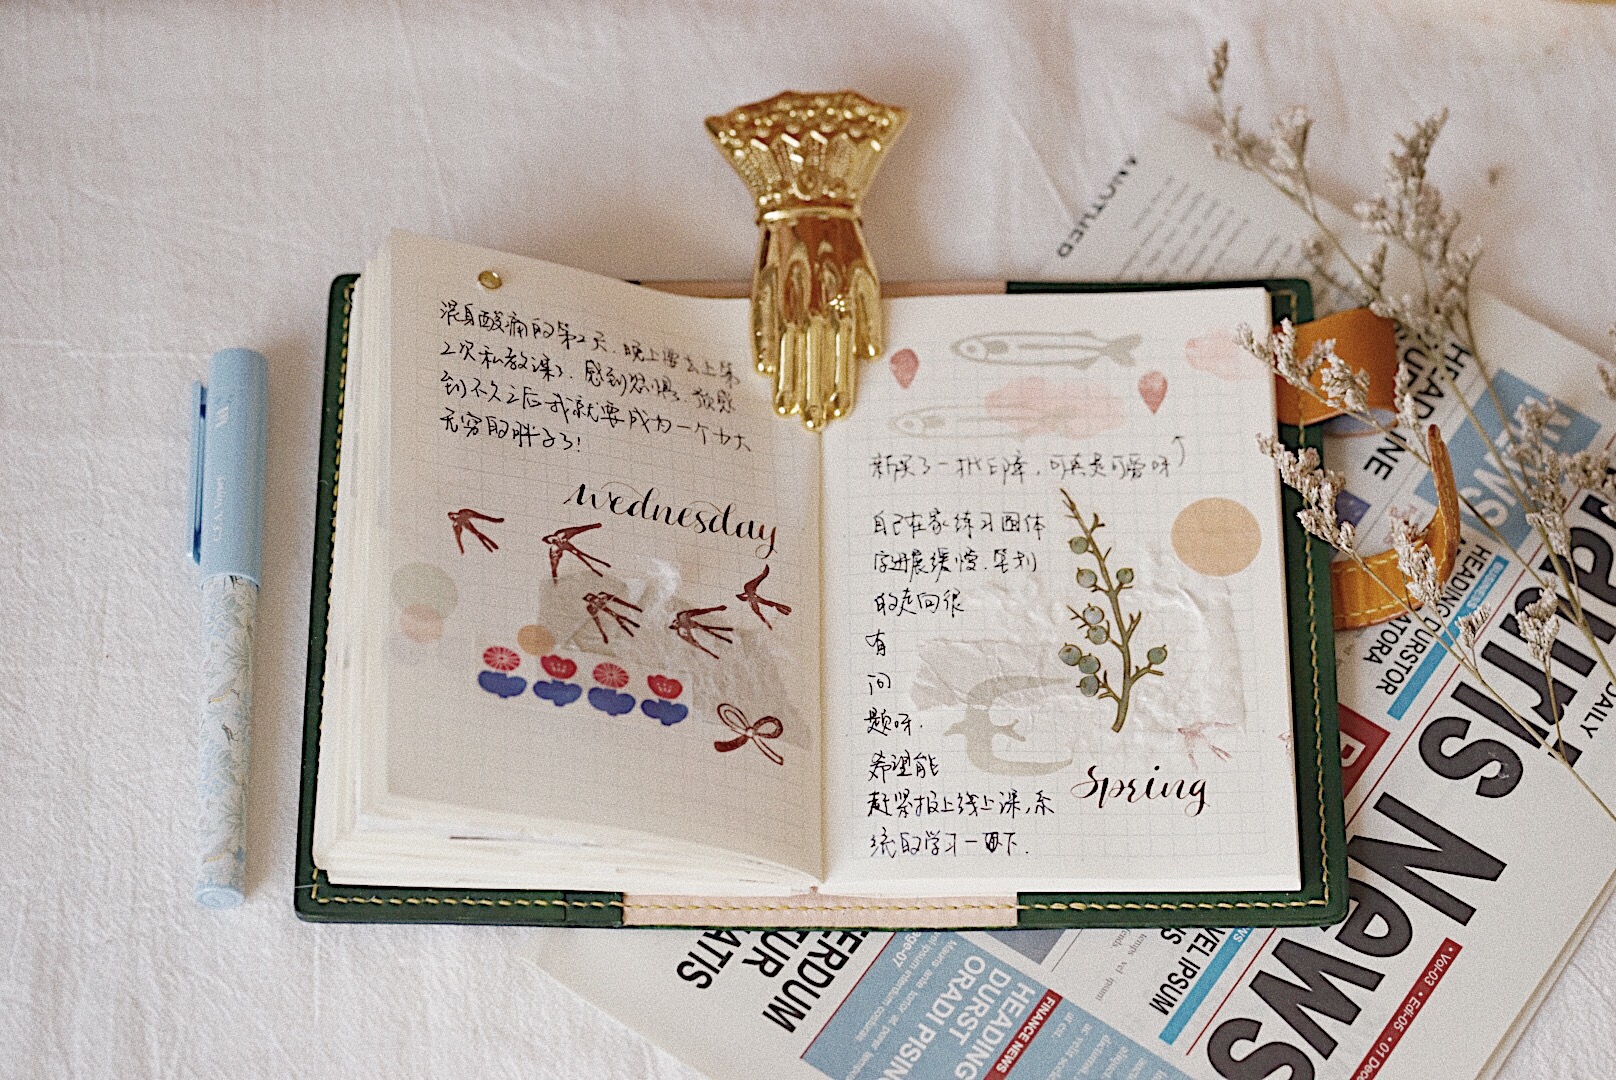 浑身酸痛的第2天.晚上要去上第
2次私教课了.感到恐惧.预感
到不久之后我就要成为一个力大
无穷的胖子了!
wednesday
新买了一批印章,可真是可爱呀
自己在家练习圆体
字进展缓慢.笔划
的走向很
有
问
题呀.
希望能
赶紧报上线上课,系
统的学习一下.
spring
Paris News
DAILY
HEADLINE
NEWS
BUSINESS
HEADING DURSTOR
ATORA
VEL IPSUM
NEWS
• Vol-03 • Edi-05 • 01 Dece
HEADING
DURST
ORADI PISING
FINANCE NEWS
age-07
ERDUM
TUR
ATIS